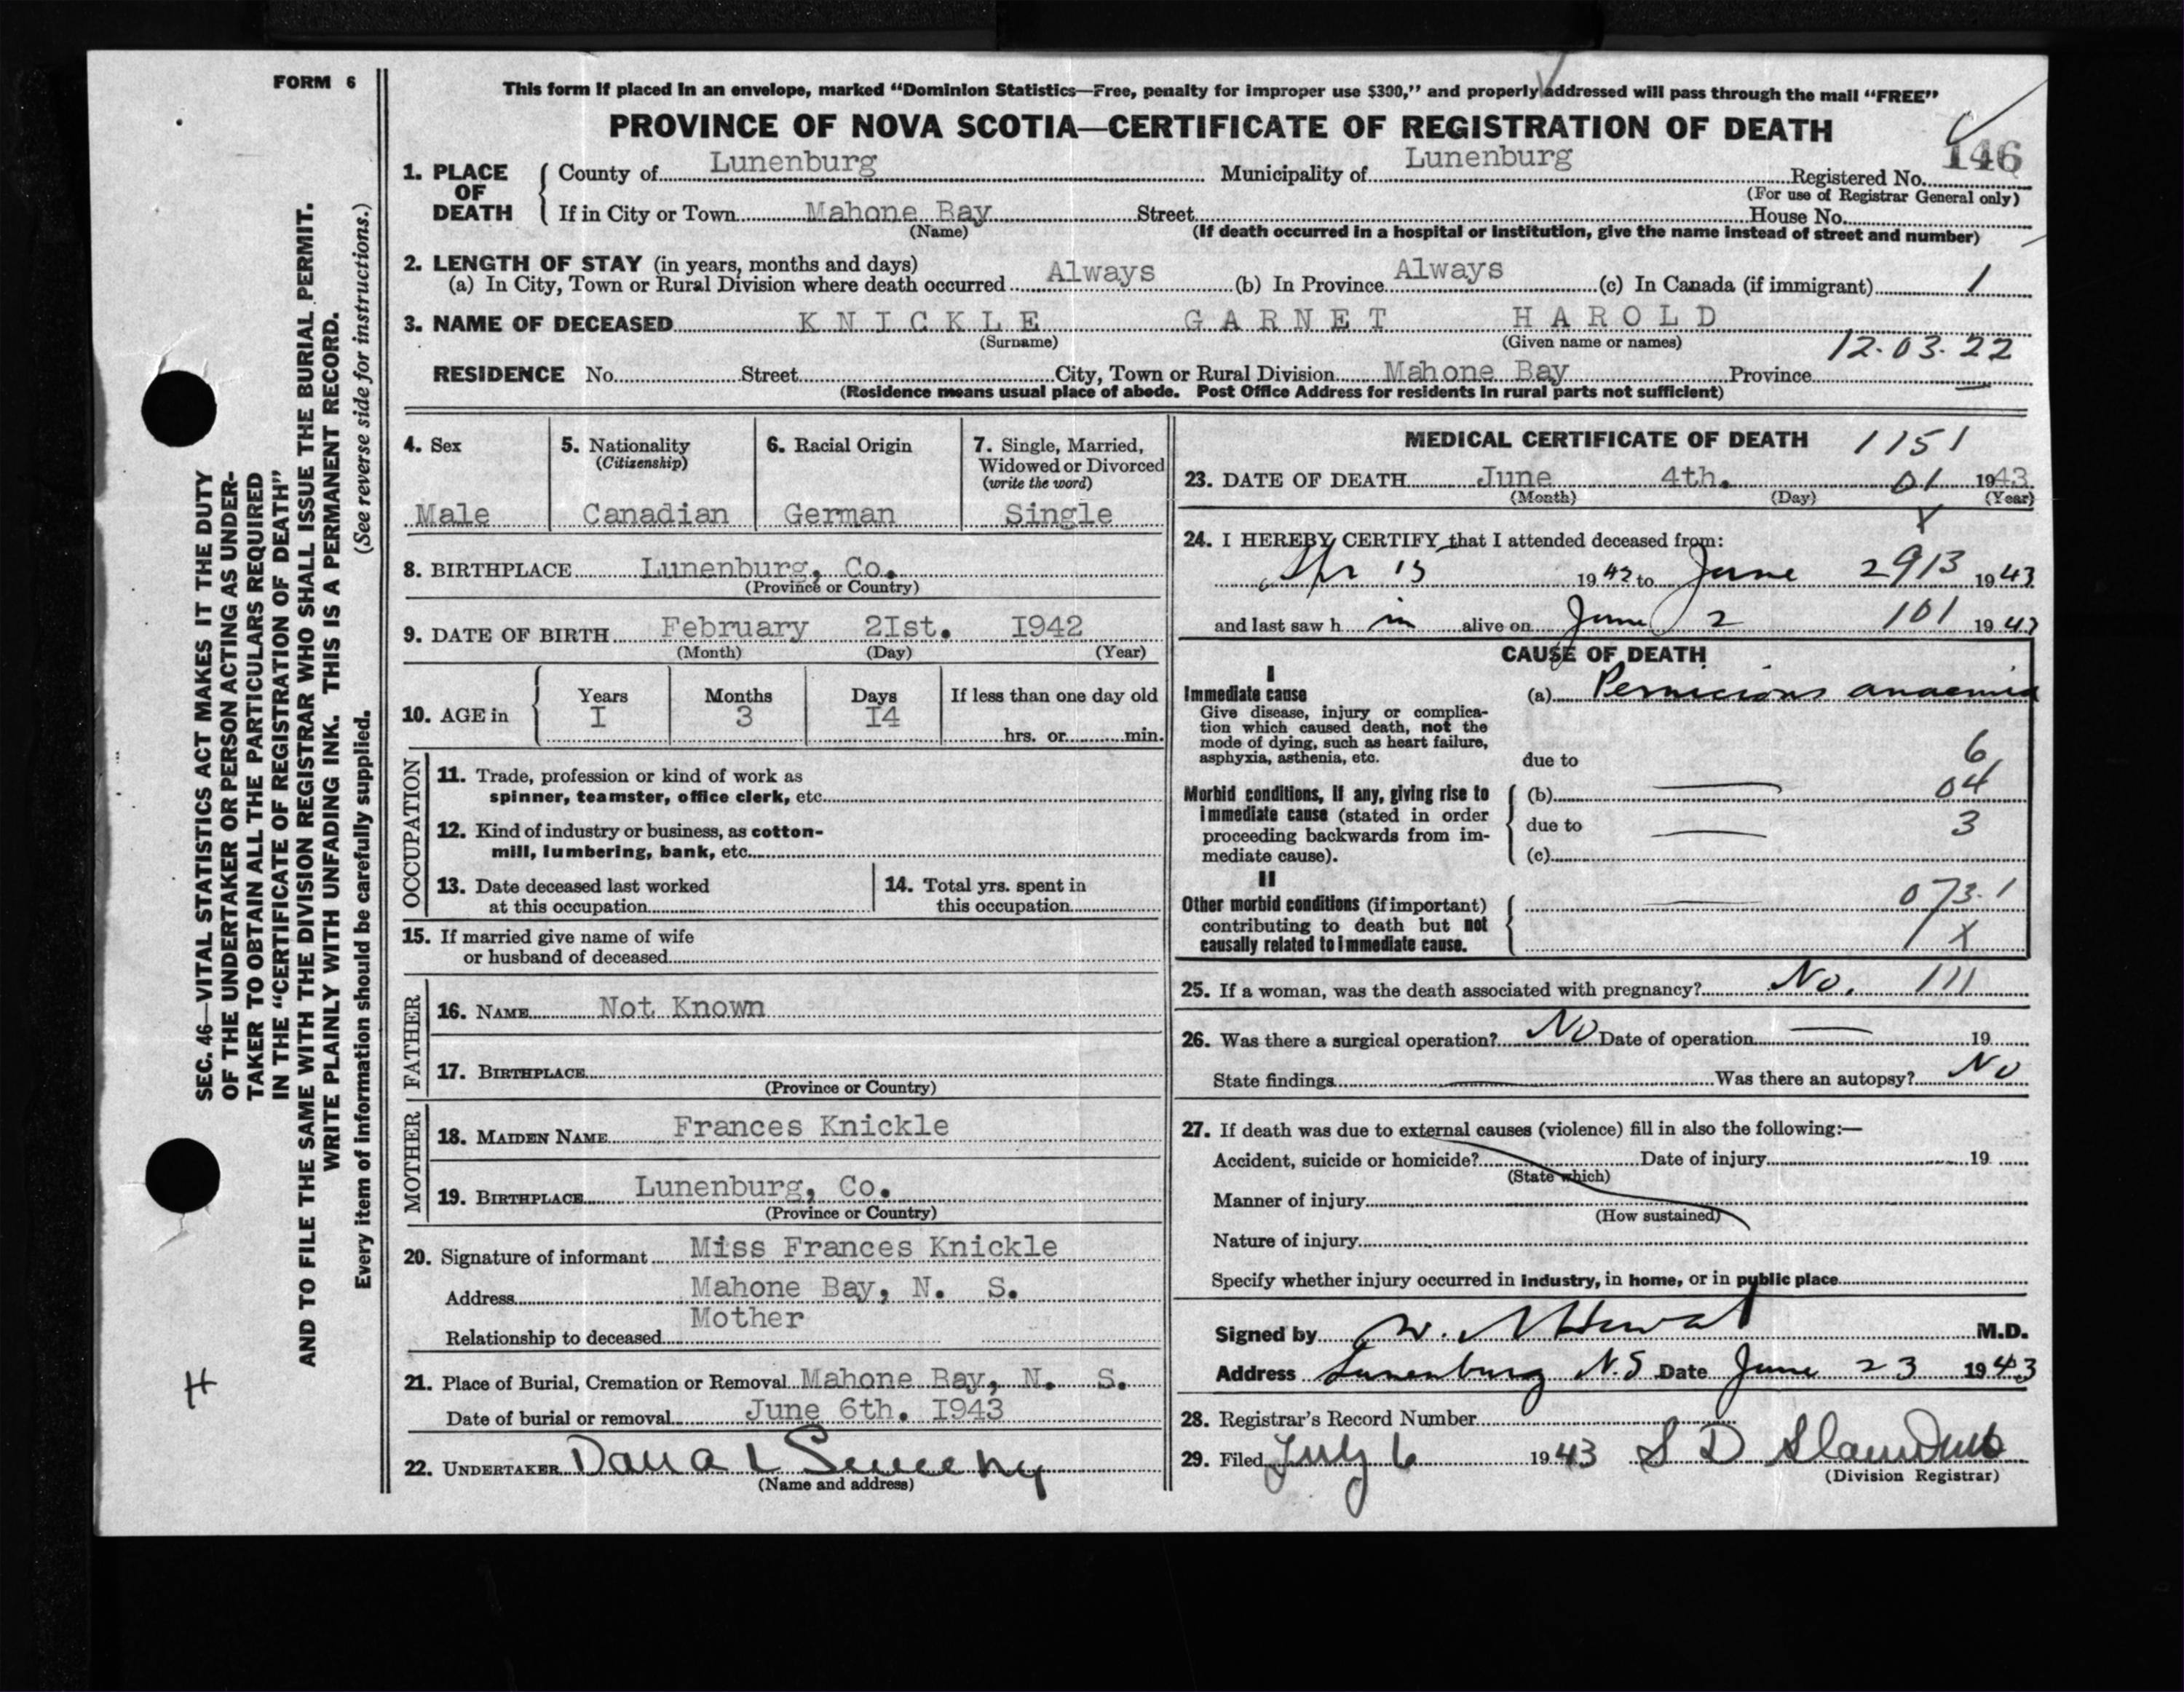 FORM 6
This form if placed in an envelope, marked "Dominion Statistics—Free, penalty for improper use $300," and properly addressed will pass through the mail "FREE"
PROVINCE OF NOVA SCOTIA—CERTIFICATE OF REGISTRATION OF DEATH
146
1. PLACE OF DEATH County of Lunenburg Municipality of Lunenburg Registered No.
(For use of Registrar General only)
If in City or Town Mahone Bay Street House No.
(Name) (If death occurred in a hospital or institution, give the name instead of street and number)
2. LENGTH OF STAY (in years, months and days)
(a) In City, Town or Rural Division where death occurred Always (b) In Province Always (c) In Canada (if immigrant) 1
3. NAME OF DECEASED KNICKLE GARNET HAROLD
(Surname) (Given name or names)
12.03.22
RESIDENCE No. Street City, Town or Rural Division Mahone Bay Province
(Residence means usual place of abode. Post Office Address for residents in rural parts not sufficient)
4. Sex
Male
5. Nationality
(Citizenship)
Canadian
6. Racial Origin
German
7. Single, Married,
Widowed or Divorced
(write the word)
Single
8. BIRTHPLACE Lunenburg, Co.
(Province or Country)
9. DATE OF BIRTH February 2Ist. I942
(Month) (Day) (Year)
10. AGE in Years Months Days If less than one day old
I 3 I4
hrs. or min.
OCCUPATION
11. Trade, profession or kind of work as
spinner, teamster, office clerk, etc.
12. Kind of industry or business, as cotton-
mill, lumbering, bank, etc.
13. Date deceased last worked
at this occupation
14. Total yrs. spent in
this occupation
15. If married give name of wife
or husband of deceased
FATHER
16. NAME Not Known
17. BIRTHPLACE
(Province or Country)
MOTHER
18. MAIDEN NAME Frances Knickle
19. BIRTHPLACE Lunenburg, Co.
(Province or Country)
20. Signature of informant Miss Frances Knickle
Address Mahone Bay, N. S.
Relationship to deceased Mother
21. Place of Burial, Cremation or Removal Mahone Bay, N. S.
Date of burial or removal June 6th. I943
22. UNDERTAKER Dana L Sweeny
(Name and address)
MEDICAL CERTIFICATE OF DEATH 1151
23. DATE OF DEATH June 4th. 01 1943
(Month) (Day) (Year)
X
24. I HEREBY CERTIFY that I attended deceased from:
Apr 15 1942 to June 2 913 1943
and last saw h im alive on June 2 101 1943
CAUSE OF DEATH
I
Immediate cause (a) Pernicious anaemia
Give disease, injury or complica-
tion which caused death, not the
mode of dying, such as heart failure,
asphyxia, asthenia, etc. due to 6
Morbid conditions, if any, giving rise to (b) 04
immediate cause (stated in order due to 3
proceeding backwards from im-
mediate cause). (c)
II
Other morbid conditions (if important) 073.1
contributing to death but not
causally related to immediate cause. X
25. If a woman, was the death associated with pregnancy? No. 111
26. Was there a surgical operation? No Date of operation 19
State findings Was there an autopsy? No
27. If death was due to external causes (violence) fill in also the following:—
Accident, suicide or homicide? Date of injury 19
(State which)
Manner of injury
(How sustained)
Nature of injury
Specify whether injury occurred in industry, in home, or in public place
Signed by W. M.D.
Address Lunenburg N.S Date June 23 1943
28. Registrar's Record Number
29. Filed July 6 1943 S D
(Division Registrar)
SEC. 46—VITAL STATISTICS ACT MAKES IT THE DUTY
OF THE UNDERTAKER OR PERSON ACTING AS UNDER-
TAKER TO OBTAIN ALL THE PARTICULARS REQUIRED
IN THE "CERTIFICATE OF REGISTRATION OF DEATH"
AND TO FILE THE SAME WITH THE DIVISION REGISTRAR WHO SHALL ISSUE THE BURIAL PERMIT.
WRITE PLAINLY WITH UNFADING INK. THIS IS A PERMANENT RECORD.
Every item of information should be carefully supplied. (See reverse side for instructions.)
H